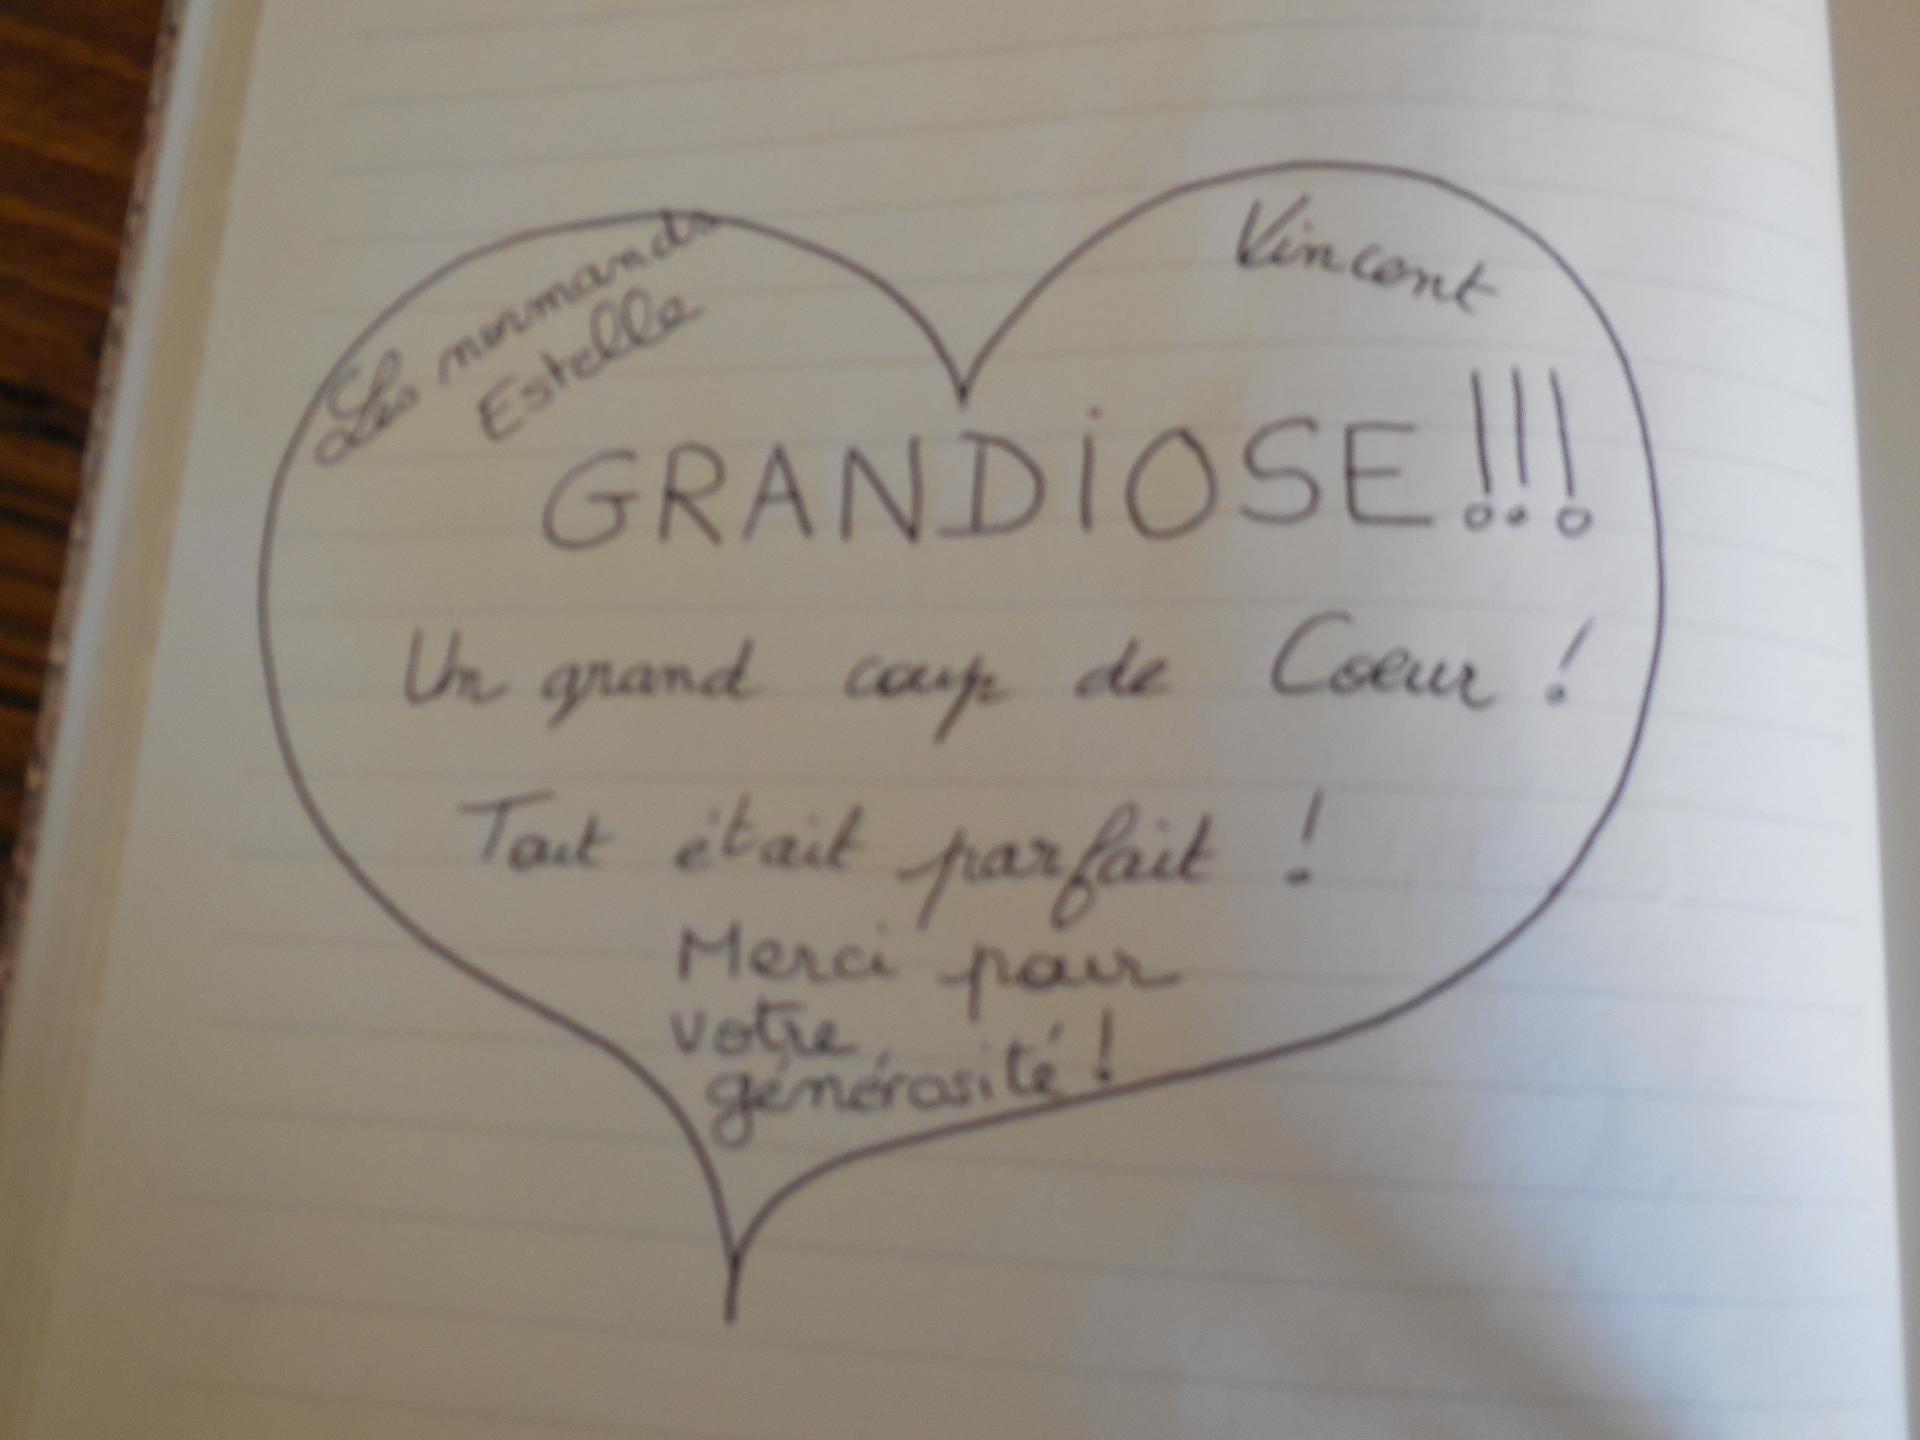 Les normands
Estelle
Vincent
GRANDiOSE!!!
Un grand coup de Coeur !
Tout était parfait !
Merci pour
votre
générosité !